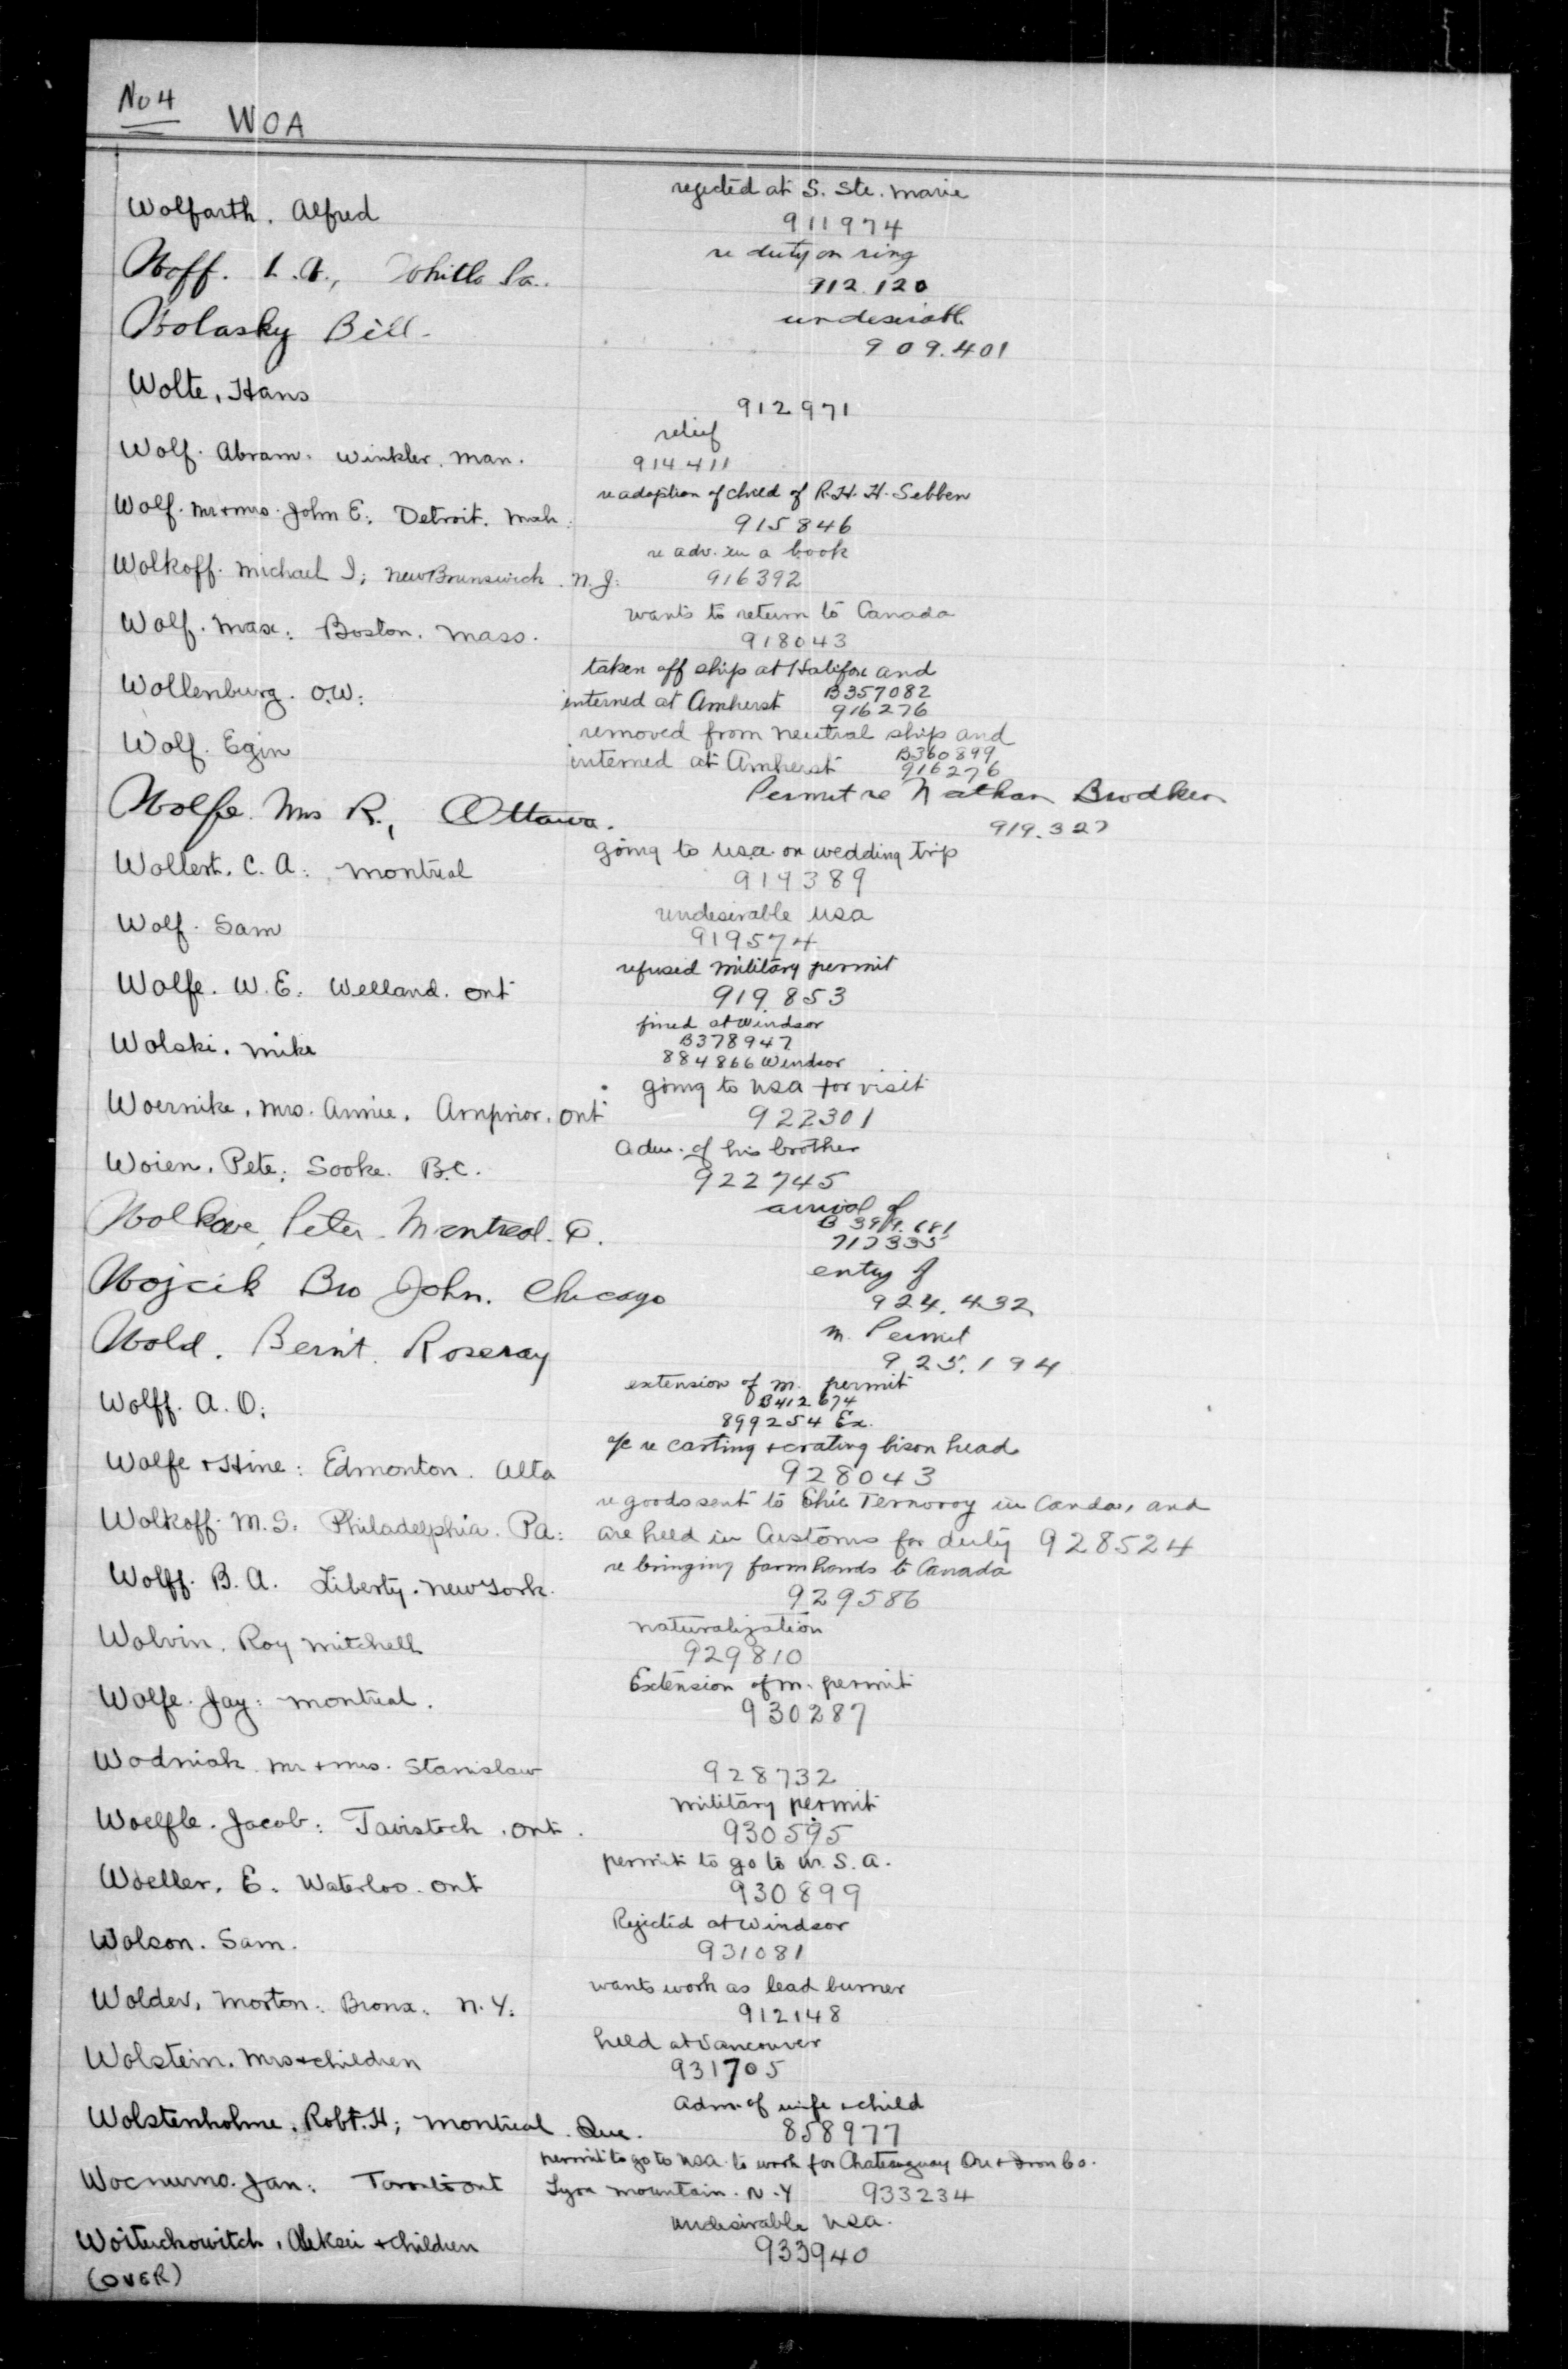 No 4
WOA
Wolfarth. Alfred
rejected at S. Ste. Marie
911974
Woff. L. A.,
re duty on ring
912.120
Wolasky Bill
undesirable
909.401
Wolte, Hans
912971
Wolf. Abram. Winkler. Man.
relief
914411
Wolf. Mr & Mrs. John E: Detroit. Mich:
re adoption of child of R.H. H. Sebben
915846
Wolkoff. Michael I; New Brunswick. N. J:
re adv. in a book
916392
Wolf. Max: Boston. Mass.
wants to return to Canada
918043
Wollenburg. O.W:
taken off ship at Halifax and
interned at Amherst B357082
916276
Wolf. Egin
removed from neutral ship and
interned at Amherst B360899
916276
Wolfe. Mrs R., Ottawa.
Permit re Nathan Brodken
919.327
Wollert. C. A: Montreal
going to USA on wedding trip
919389
Wolf. Sam
undesirable USA
919574
Wolfe. W. E: Welland. Ont
refused military permit
919853
Wolski. Mike
fined at Windsor
B378947
884866 Windsor
Woernike, Mrs. Annie. Arnprior. Ont
going to USA for visit
922301
Woien. Pete; Sooke. B.C.
adm. of his brother
922745
Wolkove, Peter. Montreal. Q.
arrival of
B 399.681
717335
Wojcik Bro John. Chicago
entry of
924.432
Wold. Bernt. Roseray
m. Permit
925.194
Wolff. A. O:
extension of m. permit
B412674
899254 Ex.
Wolfe & Hine: Edmonton. Alta
a/c re casting & crating bison head
928043
Wolkoff. M. S: Philadelphia. Pa:
re goods sent to Ternovoy in Canda, and
are held in Customs for duty 928524
Wolff. B. A. Liberty. New York.
re bringing farmhands to Canada
929586
Wolvin. Roy Mitchell
naturalization
929810
Wolfe. Jay: Montreal.
Extension of m. permit
930287
Wodniak. Mr & Mrs. Stanislaw
928732
Woelfle. Jacob: Tavistock. Ont.
military permit
930595
Woeller. E. Waterloo. Ont
permit to go to U. S. A.
930899
Wolson. Sam.
Rejected at Windsor
931081
Wolder, Morton: Bronx: N. Y:
wants work as lead burner
912148
Wolstein. Mrs & children
held at Vancouver
931705
Wolstenholme. Robt. H; Montreal. Que.
adm. of wife & child
858977
Jan: Toronto Ont
permit to go to USA to work for Chateauguay Ore & Iron Co.
Lyon Mountain. N. Y 933234
Woituchowitch, Aleksei & children
undesirable USA.
933940
(OVER)